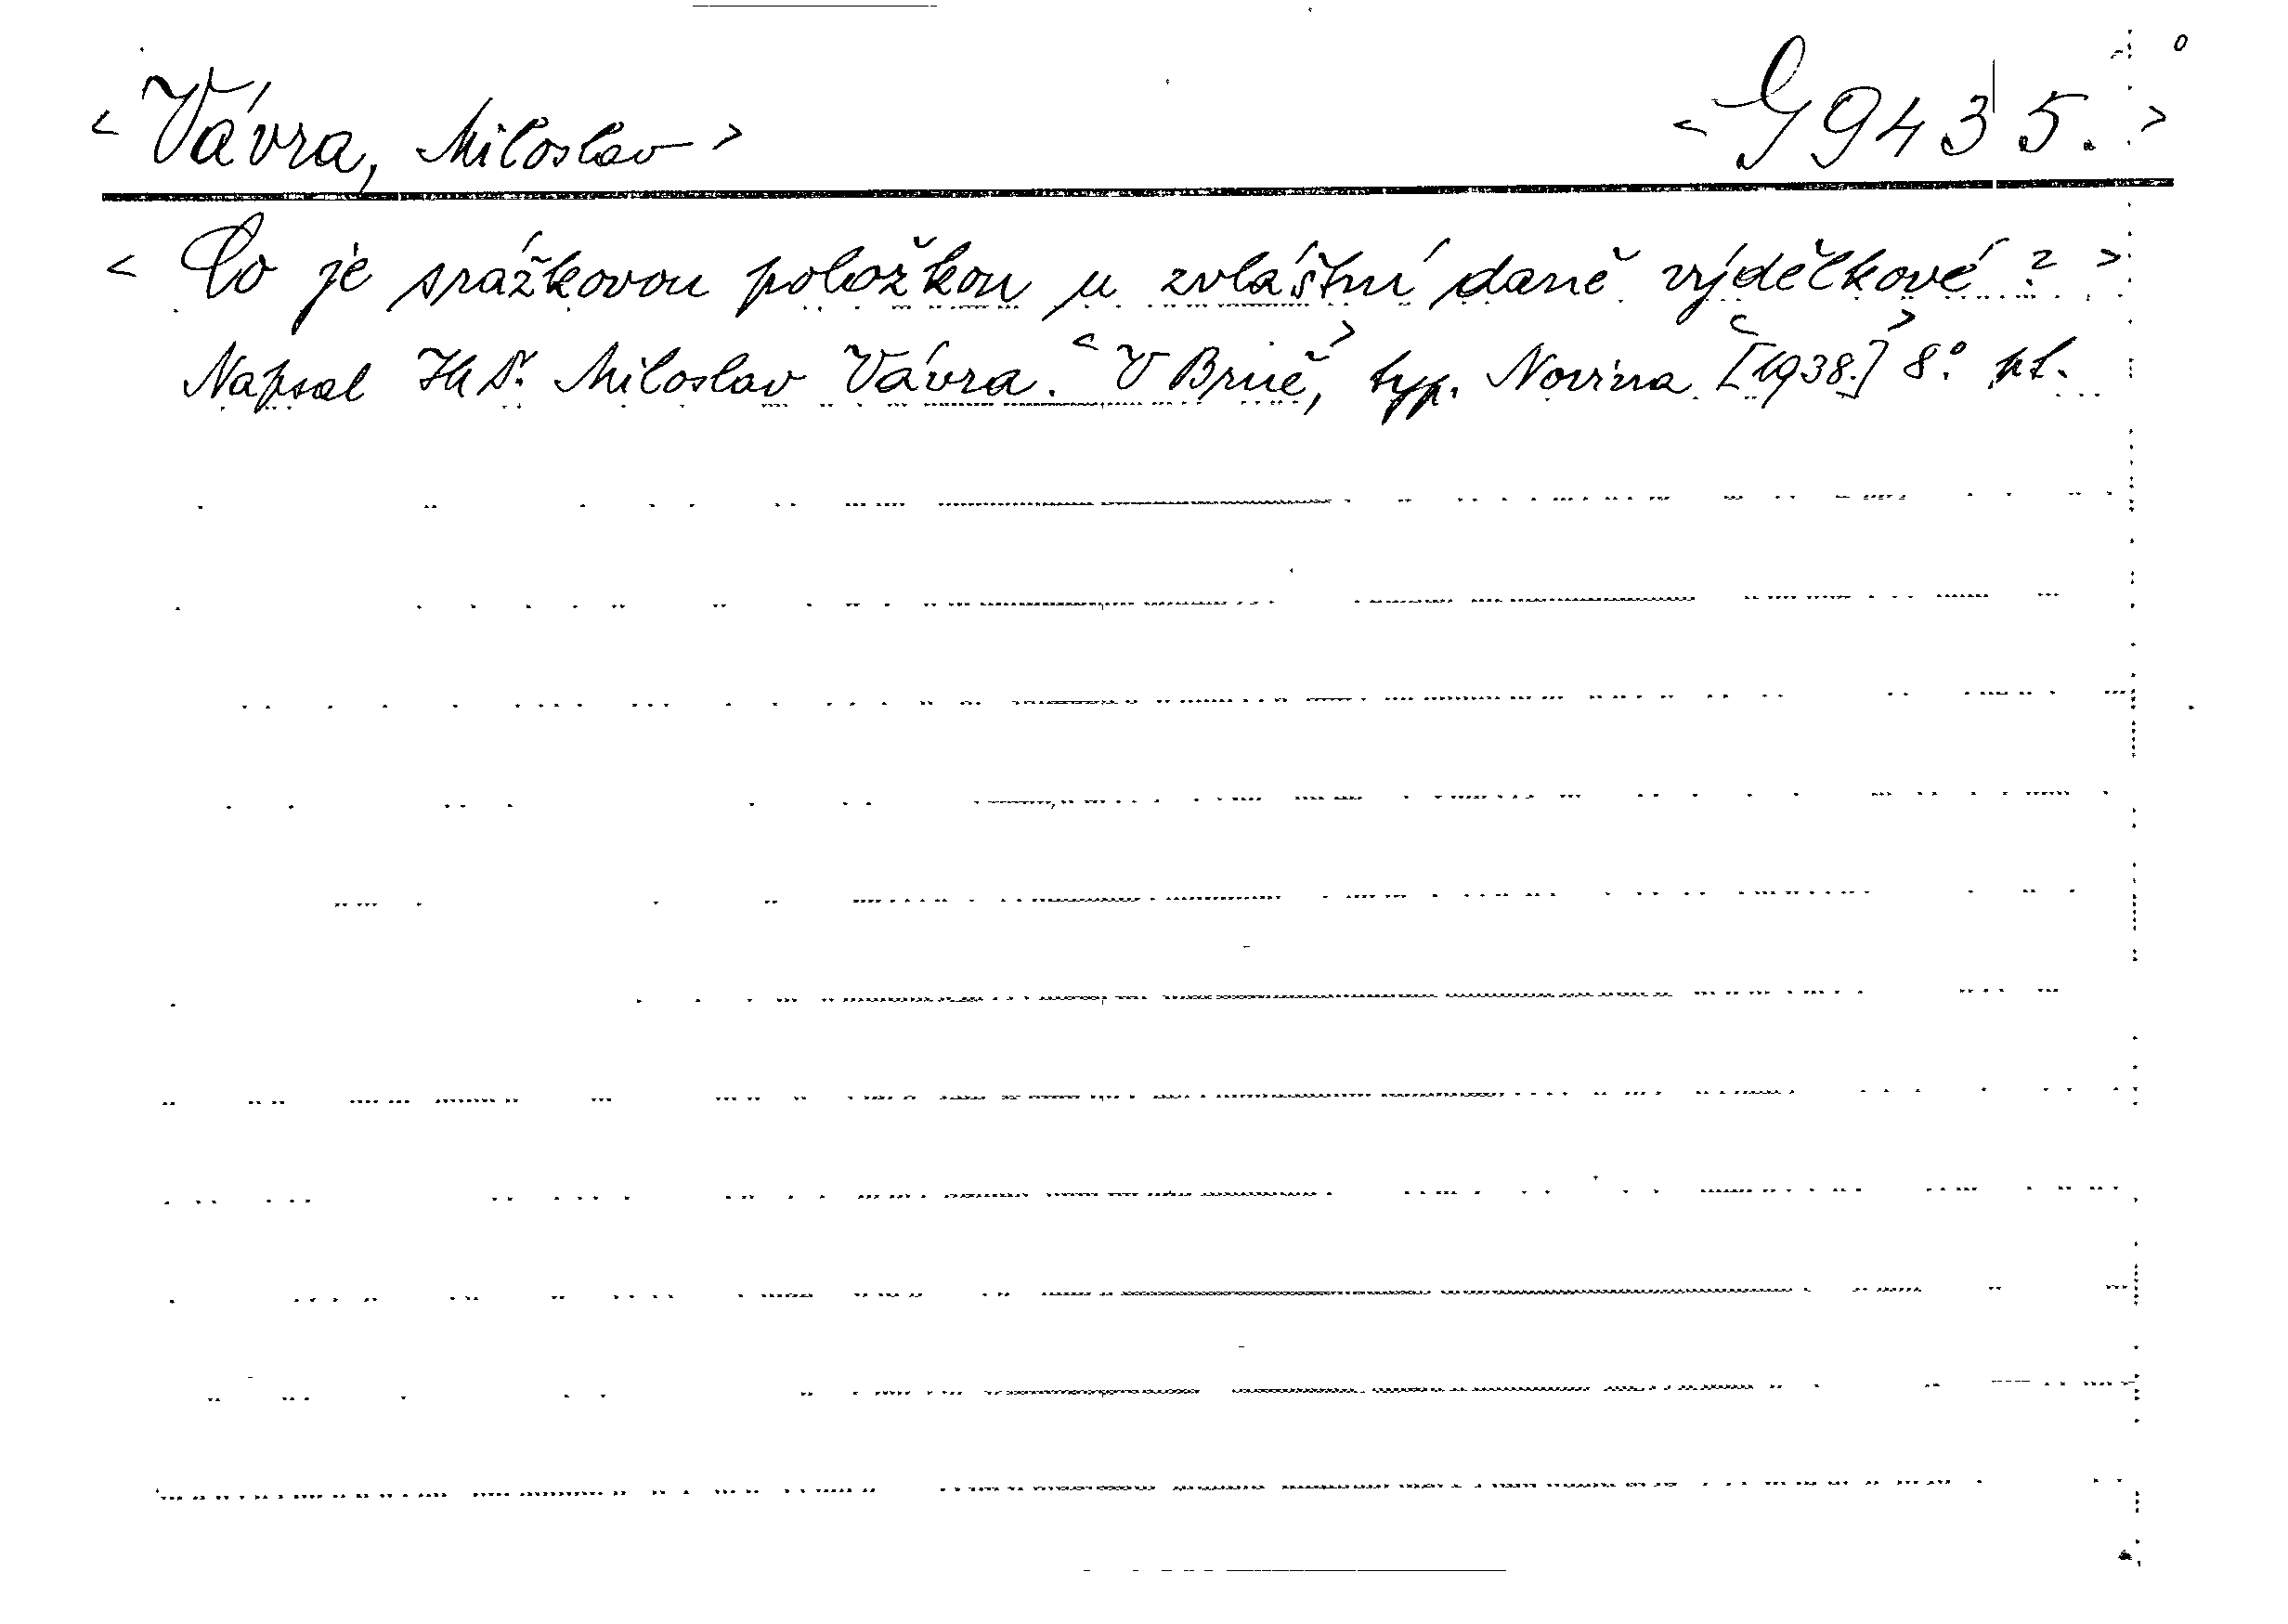 < Vávra, Miloslav > < G 9435. >
< Co je srážkovou položkou u zvláštní daně výdělkové? >
Napsal Dr. Miloslav Vávra. < V Brně, > typ. Novina < [1938.] > 8° pt.